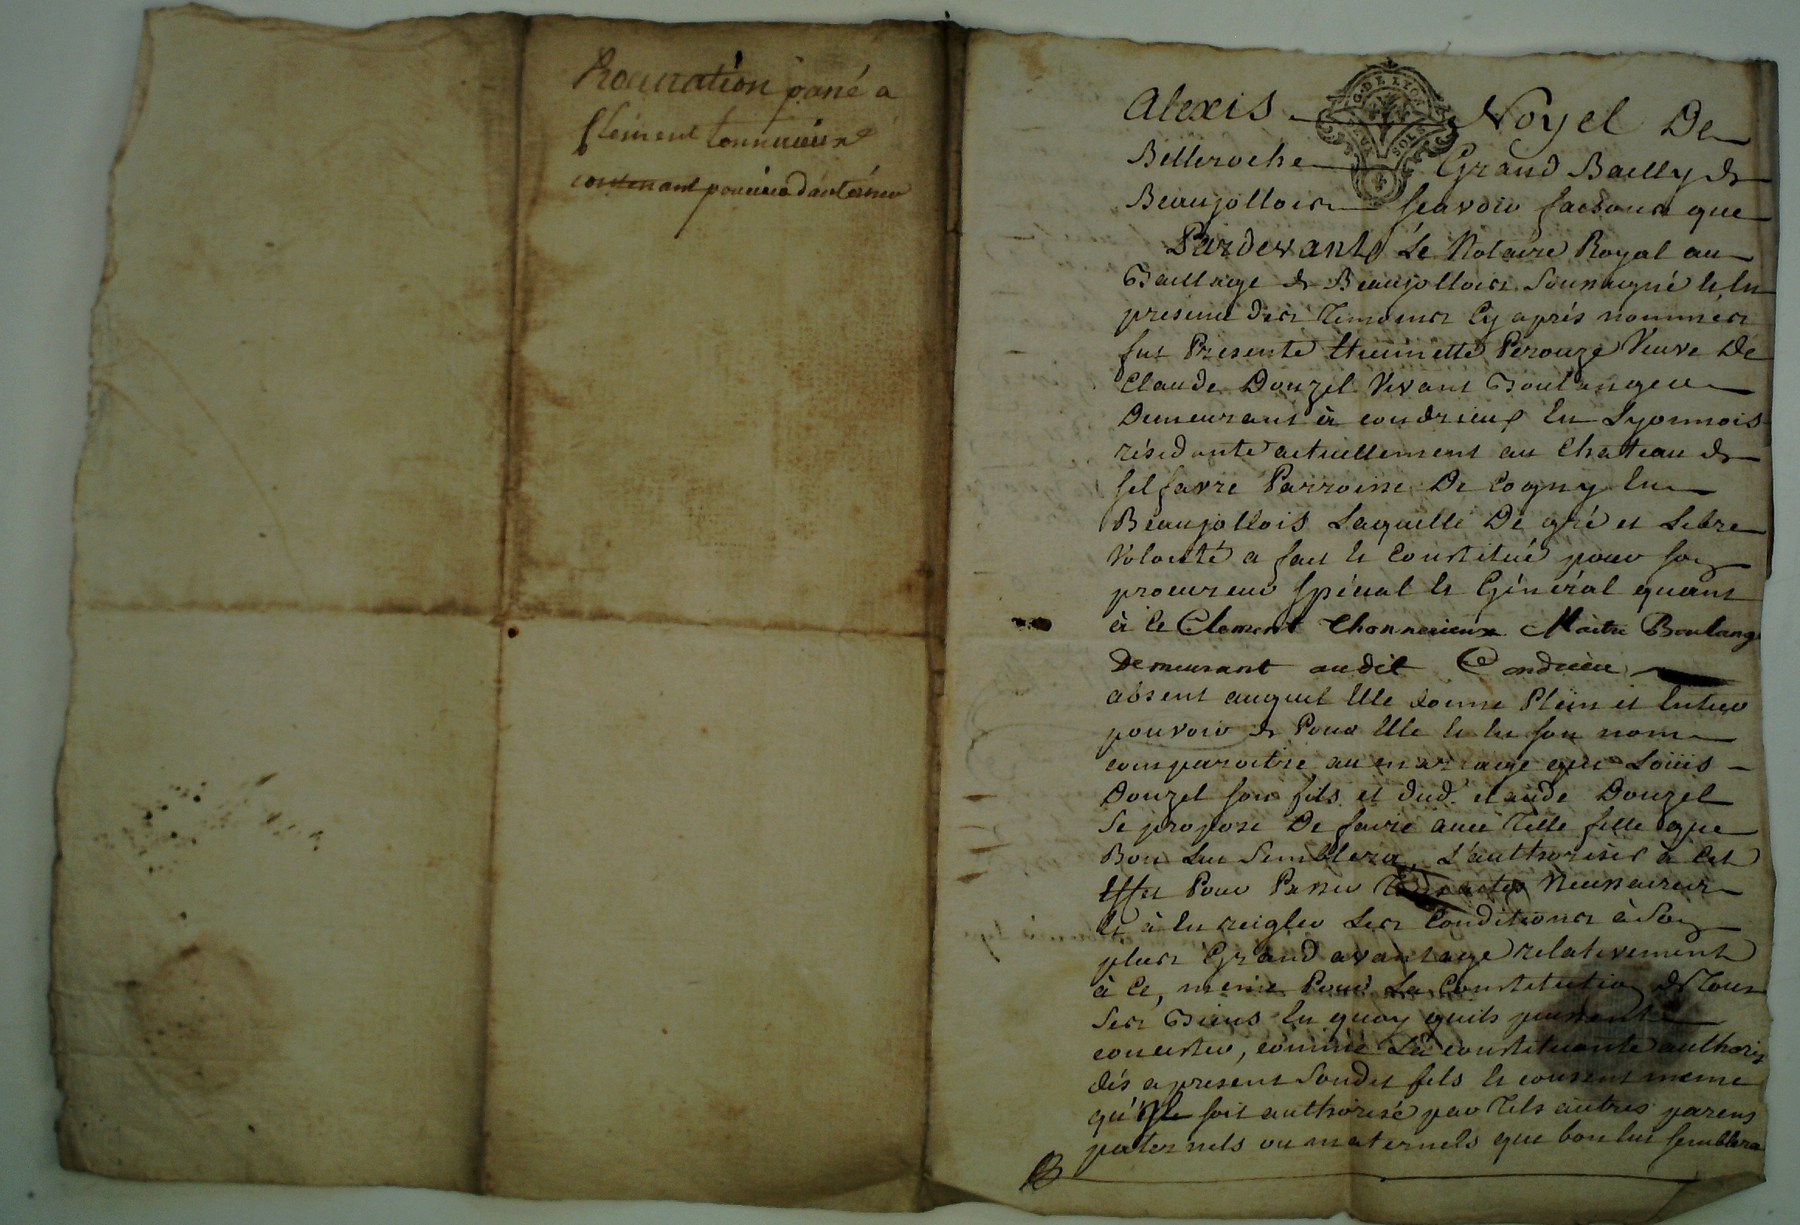 Procuration passé a
Clement tonnerieux
contenant pouvoir d'autoriser
Alexis Noyel De
G. DE LYON
SOLS
Belleroche Grand Bailly de
Beaujollois sçavoir faisons que
Pardevant Le Notaire Royal au
Baillage de Beaujollois soussigné et En
presence des Temoins Cy après nommés
fut Presente Perouze Veuve De
Claude Douzel Vivant Boulanger
Demeurant à Condrieux En Lyonnois
résidante actuellement au Chateau de
Selfavre Parroisse De Cogny En
Beaujollois Laquelle De gré et Libre
Volonté a fait et Constitué pour son
procureur spécial et Général quant
à ce Clement Thonnerieux Maitre Boulang
Demeurant audit Condrieu
absent auquel Elle donne Plein et Entier
pouvoir de Pour Elle et En son nom
comparoitre au mariage que Loüis
Douzel son fils et dud. Claude Douzel
Se propose De faire avec Telle fille que
Bon Lui Semblera, L'authoriser à cet
Effet Pour Passer actes Necessaires
Et à En reigler Les Conditions à Son
plus Grand avantage relativement
à Ce, même Pour La Constitution de Tous
Ses Biens En quoy quils puissent
concister, comme La constituante authoris
dés apresent Sondit fils et consent meme
qu'il soit authorisé par Tels autres parens
paternels ou maternels que bon lui semblera